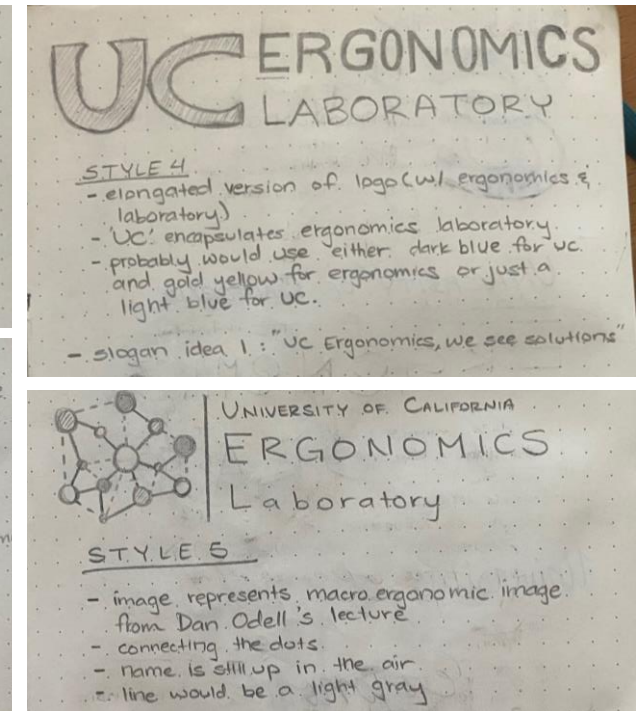 UC ERGONOMICS
LABORATORY
STYLE 4
- elongated version of logo (w/ ergonomics &
laboratory)
- 'UC' encapsulates ergonomics laboratory
- probably would use either dark blue for UC
and gold yellow for ergonomics or just a
light blue for UC.
- slogan idea 1 : "UC Ergonomics, we see solutions"
UNIVERSITY OF CALIFORNIA
ERGONOMICS
Laboratory
STYLE 5
- image represents macro ergonomic image
from Dan Odell's lecture
- connecting the dots
- name is still up in the air
- line would be a light gray